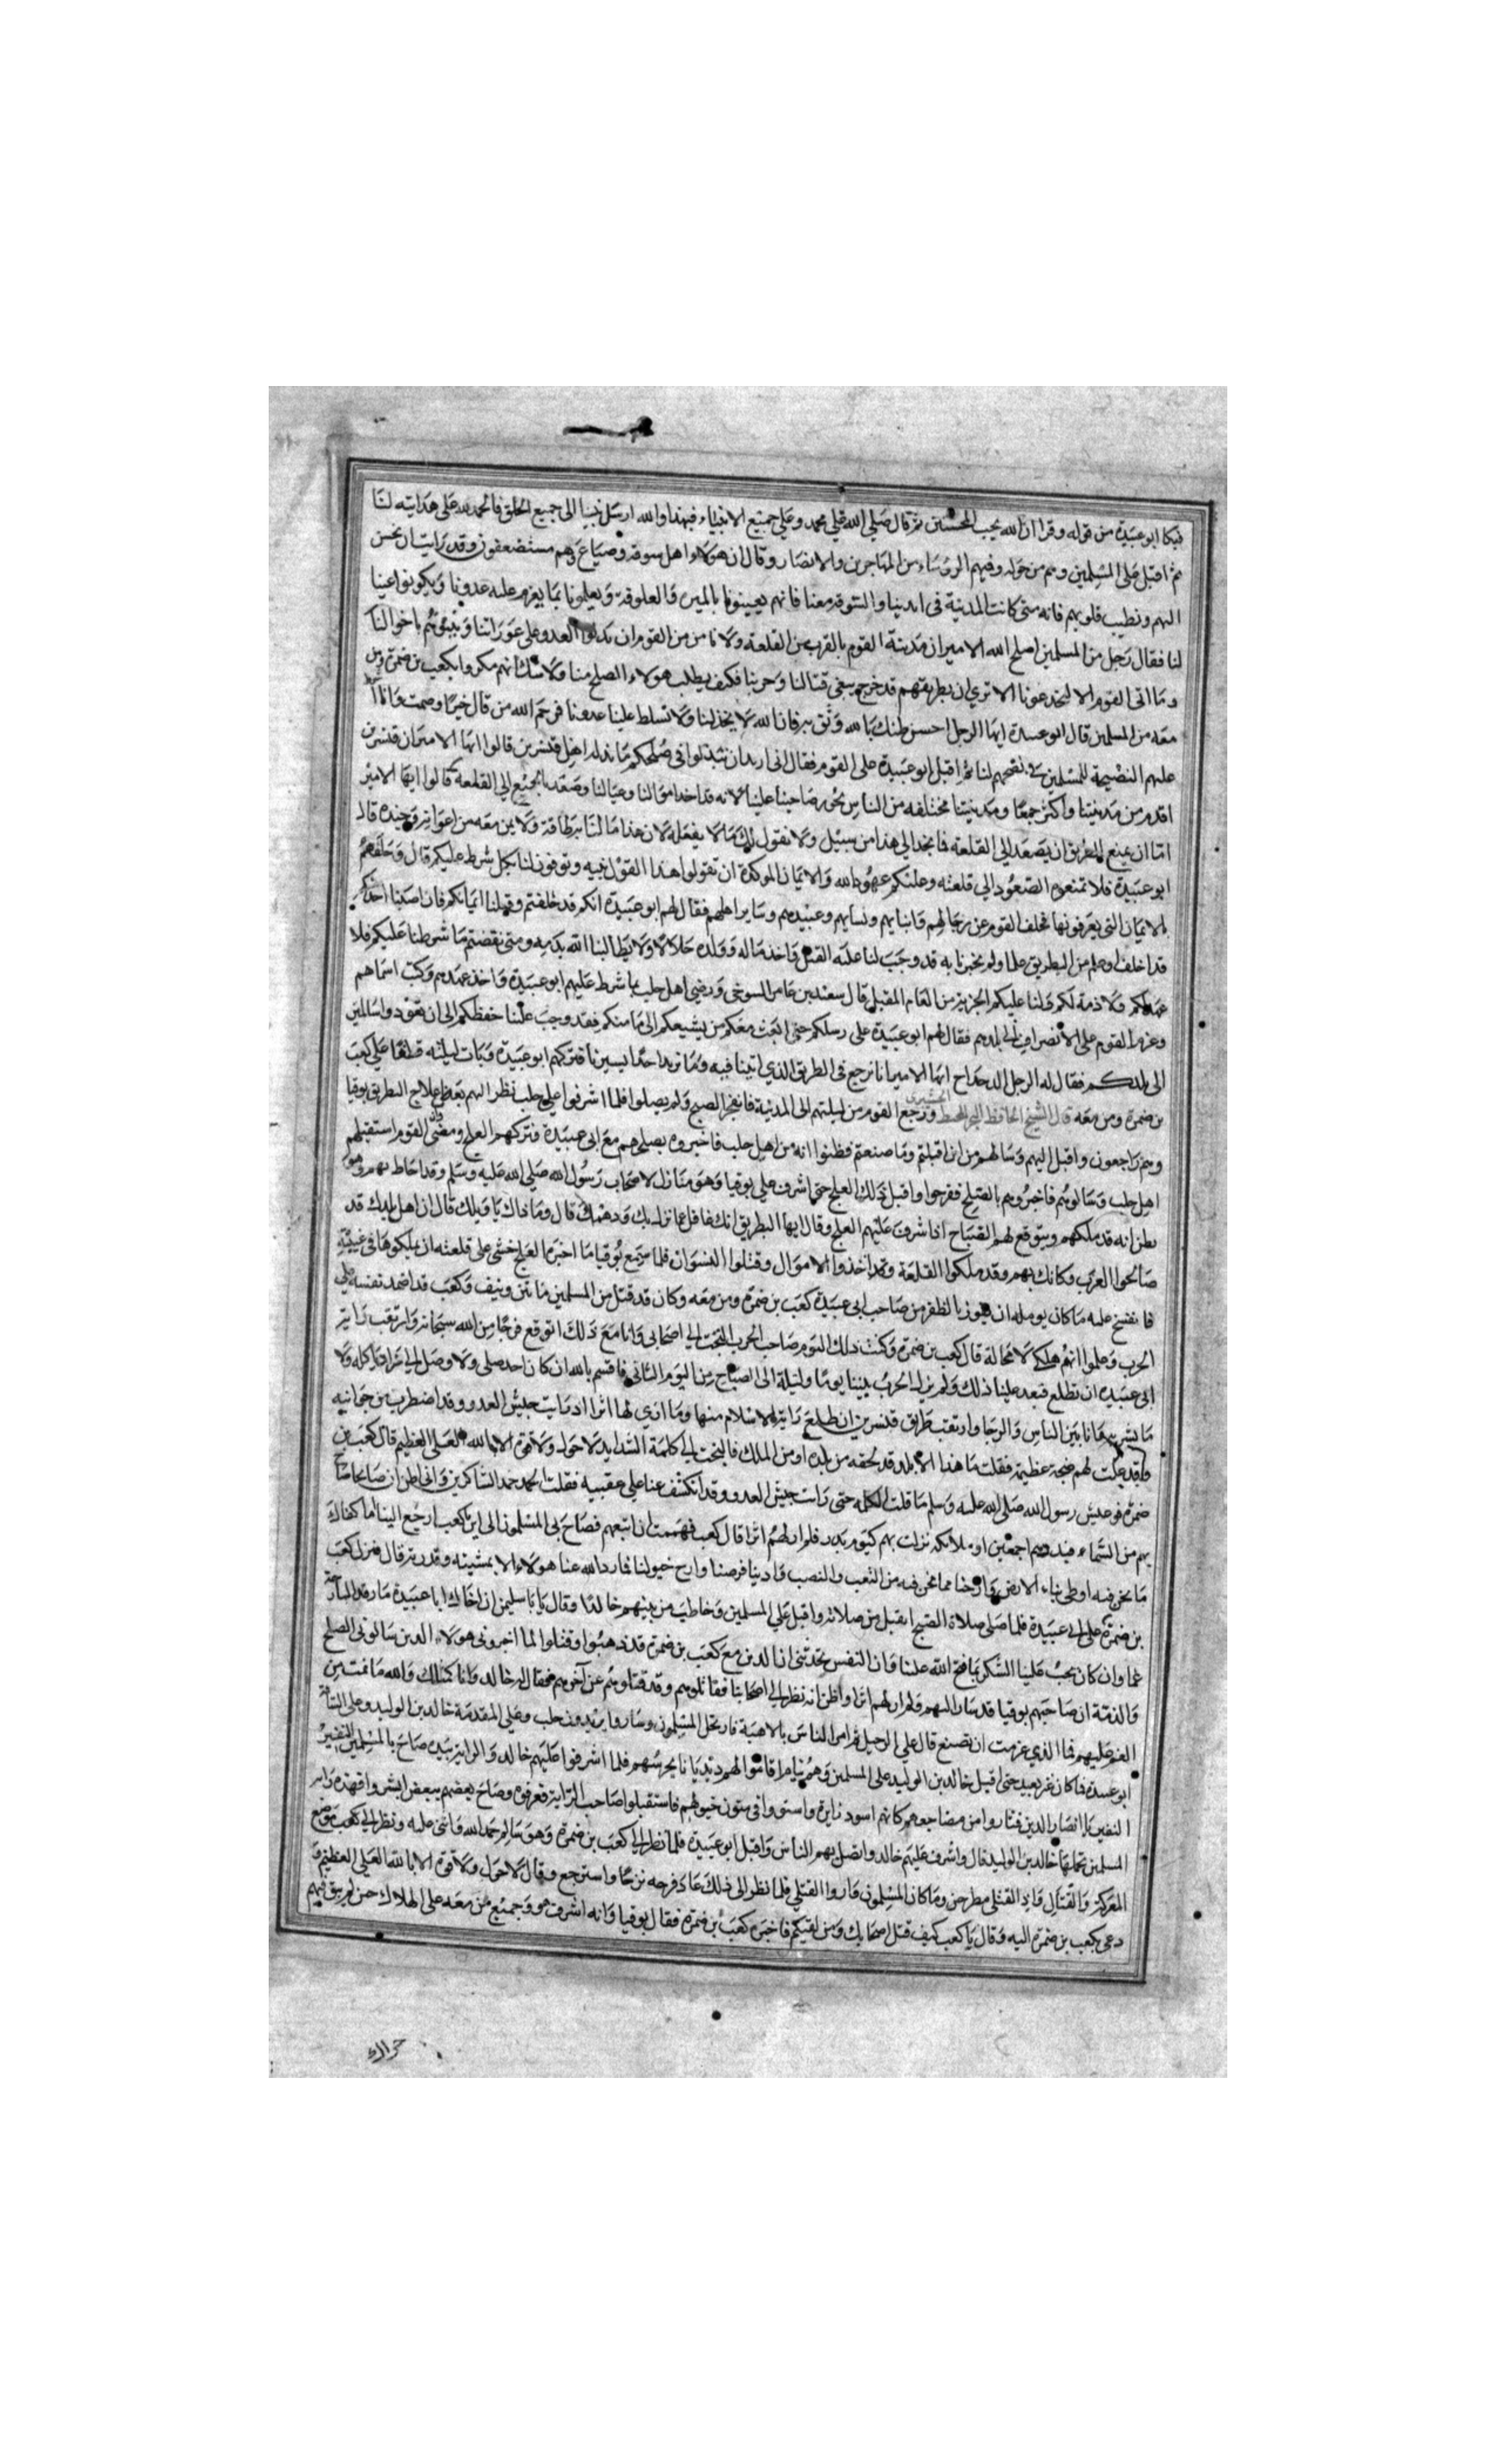 فبكا ابو عبيدة من قوله وقرا ان الله يحب المحسنين ثم قال صلي الله علي محمد وعلي جميع الانبياء فبهذا والله ارسل نبينا الى جميع الخلق فالحمد لله على هدايته لنا
ثم اقبل على المسلمين وهم من حوله وفيهم الرؤساء من المهاجرين والانصار وقال ان هولاء اهل سوقة وضياع وهم مستضعفون وقد رايت ان نحسن
اليهم ونطيب قلوبهم فانه متى كانت المدينة في ايدينا والسوقة معنا فانهم يعينونا بالميرة والعلوفة ويعلمونا بما يعزم عليه عدونا ويكونوا عينا
لنا فقال رجل من المسلمين اصلح الله الامير ان مدينة القوم بالقرب من القلعة ولا نامن من القوم ان يدلوا العدو على عوراتنا وينبؤهم باخوالنا
وما اتى القوم الا ليخدعونا الا تري ان بطريقهم قد خرج يبغي قتالنا وحربنا فكيف يطلب هولاء الصلح منا ولا شك انهم مكروا بكعب بن ضمرة ومن
معه من المسلمين قال ابو عبيدة ايها الرجل احسن ظنك بالله وثق به فان الله لا يخذلنا ولا تسلط علينا عدونا فرحم الله من قال خيرا وصمت وانا
عليهم النصيحة للمسلمين في نصحهم لنا ثم اقبل ابو عبيدة على القوم فقال اني اريد ان تبذلوا في صلحكم ما بذله اهل قنسرين قالوا ايها الامير ان قنسرين
اقدم من مدينتنا واكثر جمعا ومدينتنا مختلفه من الناس بجور صاحبنا علينا لانه قد اخذ اموالنا وعيالنا وصعد بالجميع الي القلعة قالوا ايها الامير
اما ان يمنع البطريق ان يصعد الي القلعة فما نجد الي هذا من سبيل ولا نقول لك ما لا يفعله لان هذا ما لنا به طاقة ولا بمن معه من اعوانه وجنده قال
ابو عبيدة فلا تمنعوه الصعود الي قلعته وعليكم عهود الله والايمان الموكدة ان تقولوا هذا القول فيه وتوفون لنا بكل شرط عليكم قال وحلفهم
بالايمان التي يعرفونها فحلف القوم عن رجالهم وابنايهم ونسايهم وعبيدهم وساير اهلهم فقال لهم ابو عبيدة انكم قد حلفتم وقبلنا ايمانكم فان اصبنا احدا
قد اخلف او علم من البطريق علما ولم يخبرنا به قد وجب لنا عليه القتل واخذ ماله وولده حلالا ولا يطالبنا الله بدمه ومتى نقضتم ما شرطنا عليكم فلا
عهد لكم ولا ذمة لكم ولنا عليكم الجزية من العام المقبل قال سعيد بن عامر التنوخي ورضي اهل حلب بما شرط عليهم ابو عبيدة واخذ عهدهم وكتب اسماهم
وعزم القوم على الانصراف الى بلدهم فقال لهم ابو عبيدة على رسلكم حتى ابعث معكم من يشيعكم الى مامنكم فقد وجب علينا حفظكم الى ان تعودوا سالمين
الى بلدكم فقال له الرجل الدحداح ايها الامير انا نرجع في الطريق الذي اتينا فيه وما نريد احدا يسير بنا فتركهم ابو عبيدة وبات ليلته قلقا علي كعب
بن ضمرة ومن معه قال الشيخ الحافظ ورجع القوم من ليلتهم الى المدينة فانفجر الصبح ولم يصلوا فلما اشرفوا علي حلب نظر اليهم بعض علاج البطريق يوقنا
وهم راجعون واقبل اليهم وسالهم من اين اقبلتم وما صنعتم فظنوا انه من اهل حلب فاخبروه بصلحهم مع ابي عبيدة فتركهم العلج ومضى القوم استقبلهم
اهل حلب وسالوهم فاخبروهم بالصلح ففرحوا واقبل ذلك العلج حتى اشرف علي يوقنا وهو منازل لاصحاب رسول الله صلي الله عليه وسلم وقد احاط بهم وهو
يظن انه قد ملكهم ويتوقع لهم الصباح اذ اشرف عليهم العلج وقال ايها البطريق انك غافل عما نزل بك ودهمك قال وما ذاك يا ويلك قال ان اهل بلدك قد
صالحوا العرب وكانك بهم وقد ملكوا القلعة وقد اخذوا الاموال وقتلوا النسوان فلما سمع يوقنا ما اخبره العلج خشي على قلعته ان يملكوها في غيبته
فانفتح عليه ما كان يومله ان يفوز بالظفر من صاحب ابي عبيدة كعب بن ضمرة ومن معه وكان قد قتل من المسلمين مائتين ونيف وكعب قد اضد نفسه علي
الحرب وعلموا انهم هلكى لا محالة قال كعب بن ضمرة وكنت ذلك اليوم صاحب الحرب التجت الي اصحابي وانا مع ذلك اتوقع فرجا من الله سبحانه وارتقب راية
ابي عبيدة ان تطلع فبعد علينا ذلك ولم يزل الحرب بيننا يوما وليلة الى الصباح من اليوم الثاني فاقسم بالله ان كان احد صلى ولا وصل الى زاد ياكله ولا
ما يشربه وانا بين الناس والرجا وارتقب طريق قنسرين ان تطلع راية الاسلام منها وما اري لها اثرا اذ رايت جيش العدو وقد اضطرب من جوانبه
وقد علت لهم ضجة عظيمة فقلت ما هذا الا بلد قد لحقه من بلده او من الملك فالتجت الي كلمة الشدايد لا حول ولا قوة الا بالله العلي العظيم قال كعب بن
ضمرة فو عيش رسول الله صلى الله عليه وسلم ما قلت الكلمه حتى رايت جيش العدو وقد انكشف عنا علي عقبيه فقلت الحمد لله حمد الشاكرين واني اظن ان صايحا صاح
بهم من السماء فبددهم اجمعين او ملائكه نزلت بهم كيوم بدر فلم ار لهم اثرا قال كعب فهممت ان اتبعهم فصاح بي المسلمون الى اين يا كعب ارجع الينا اما كفاك
ما نحن فيه اوطى بنا الارض وارحنا مما نحن فيه من التعب والنصب وادينا فرضنا وارح خيولنا فما رد الله عنا هولاء الا بمشيئته وقدرته قال فنزل كعب
بن ضمرة علي ابي عبيدة فلما صلى صلاة الصبح انفتل من صلاته واقبل علي المسلمين وخاطب من بينهم خالدا وقال يا ابا سليمن ان اخاك ابا عبيدة ما رقد البارحة
غما وان كان يجب علينا الشكر بما فتح الله علينا وان النفس تحدثني ان الذين مع كعب بن ضمرة قد ذهبوا وقتلوا لما اخبروني هولاء الذين سالوني الصلح
والذمة ان صاحبهم يوقنا قد سار اليهم ولم ار لهم اثرا واظن انه نظر الى اصحابنا فقاتلوهم وقد قتلوهم عن آخرهم فقال له خالد وانا كذلك والله ما نمت من
الغم عليهم فما الذي عزمت ان تصنع قال علي الرحيل ثم امر الناس بالاهبة فارتحل المسلمون وساروا يريدون حلب وعلي المقدمة خالد بن الوليد وعلى الساقة
ابو عبيدة فما كان غير بعيد حتى اقبل خالد بن الوليد على المسلمين وهم نيام اقاموا لهم ديدبانا يحرسهم فلما اشرفوا عليهم خالد والراية بيده صاح بالمسلمين النفير
النفير يا انصار الدين فثاروا من مضاجعهم كانهم اسود زايرة واستووا في متون خيولهم فاستقبلوا صاحب الراية فعرفوه وصاح بعضهم ببعض ابشروا فهذه راية
المسلمين تحملها خالد بن الوليد قال واشرف عليهم خالد واتصل بهم الناس واقبل ابو عبيدة فلما نظر الى كعب بن ضمرة وهو سالم حمد الله واثنى عليه ونظر الى كعب موضع
المعركة والقتال فاذا القتلى مطرحين وما كان المسلمون واروا القتلي فلما نظر الى ذلك عاد فرحه ترحا واسترجع وقال لا حول ولا قوة الا بالله العلي العظيم ثم
دعى بكعب بن ضمرة اليه وقال يا كعب كيف قتل اصحابك ومن لقيكم فاخبره كعب بن ضمرة فقال يوقنا وانه اشرفت هو وجميع من معه على الهلاك حين لم يبق فيهم